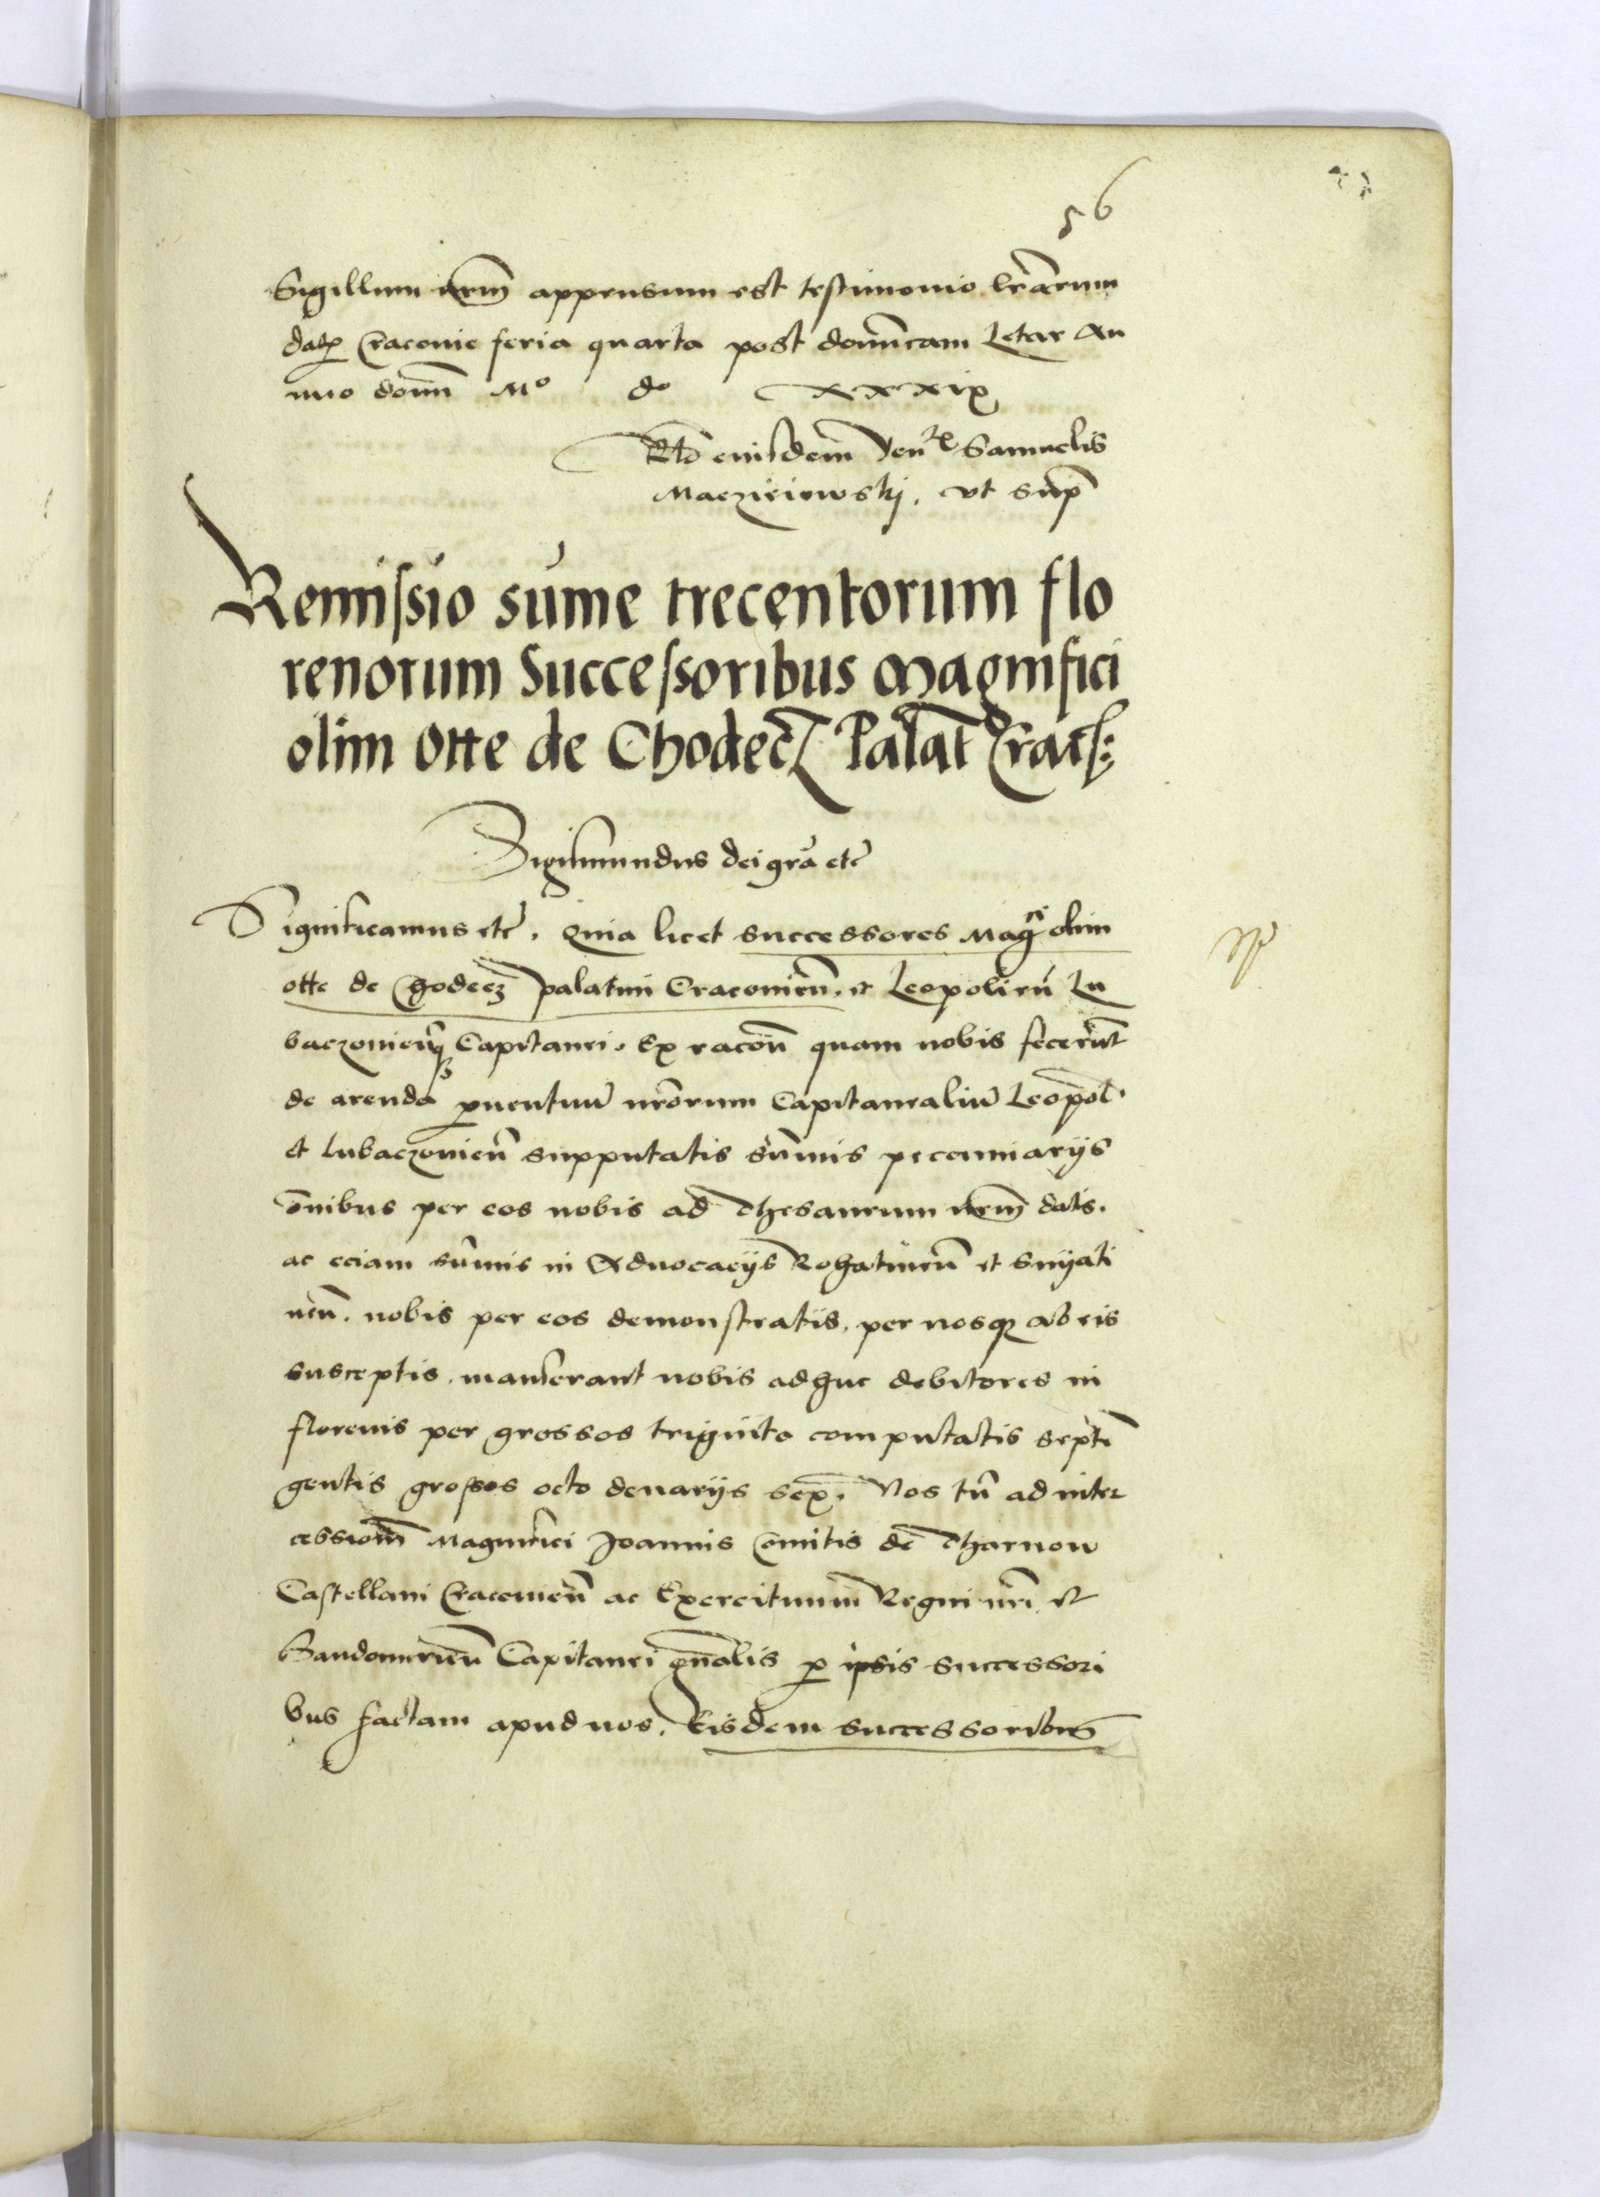 56
Sigillum nr̃m appensum est testimonio lr̃arum
datꝭ Cracovie feria quarta post domĩcam Letar An
nno domĩ Mº dº xxxix
Rlo eiusdem Venˡᵉ Samuelis
Maczieiowskj. vt sup̃
Remissio sume trecentorum flo
renorum Successoribus Magnifici
olim Otte de Chodecz Palat̃ Cracͯ:
Sigismundus dei gr̃a etc̃
Significamus etc̃. Quia licet successores Magᶜⁱ olim
otte de Chodecz palatini Cracovien̄. et Leopolien̄ Lu
baczovien̄qʒ Capitanei. Ex racoñ quam nobis fecerũt
de arenda ꝓventuũ nr̃orum Capitanealiũ Leopol̃.
et lubaczovien̄ supputatis sum̃is pecuniarijs
om̃nibus per eos nobis ad Thesaurum nr̃m datis.
ac eciam sum̃is in Advocacijs Rohatinen̄ et Snyati
nen̄. nobis per eos demonstratis. per nosqꝫ ab eis
susceptis. manserant nobis adhuc debitores in
florenis per grossos triginta computatis septĩ
gentis grossos octo denarijs sex. Nos tñ ad inter
cessiom̃ Magnifici Joannis Comitis de Tharnow
Castellani Cracovien̄ ac Exercituum Regni nr̃i et
Sandomirien̄ Capitanei gn̄alis ꝓ ipsis successori
bus factam apud nos. Eisdem successoribus